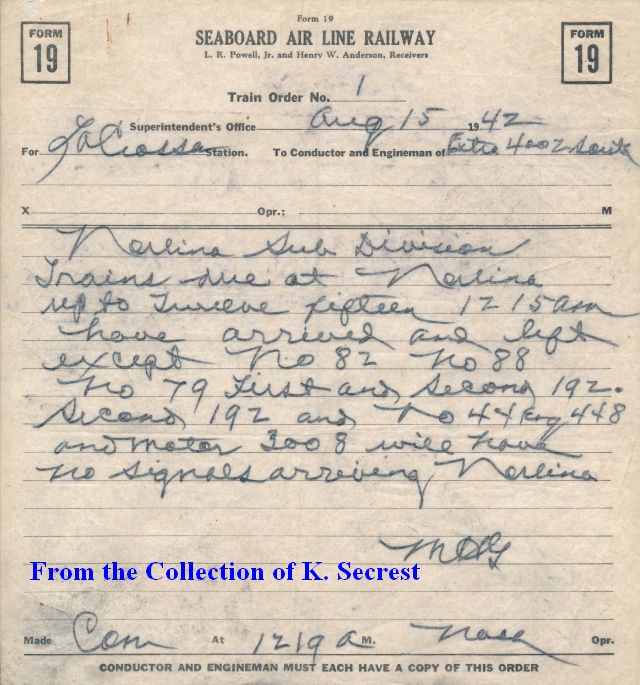 Form 19
FORM 19
SEABOARD AIR LINE RAILWAY
FORM 19
L. R. Powell, Jr. and Henry W. Anderson, Receivers
Train Order No. 1
Superintendent's Office Aug 15 1942
For LaCrosse Station. To Conductor and Engineman of Extra 4002 South
X Opr.; M
Norlina Sub Division
Trains due at Norlina
up to Twelve fifteen 1215am
have arrived and left
except No 82 No 88
No 79 First and Second 192.
Second 192 and No 44 Eng 448
and Motor 3008 will have
no signals arriving Norlina
From the Collection of K. Secrest
Made Com At 1219 a M. Opr.
CONDUCTOR AND ENGINEMAN MUST EACH HAVE A COPY OF THIS ORDER